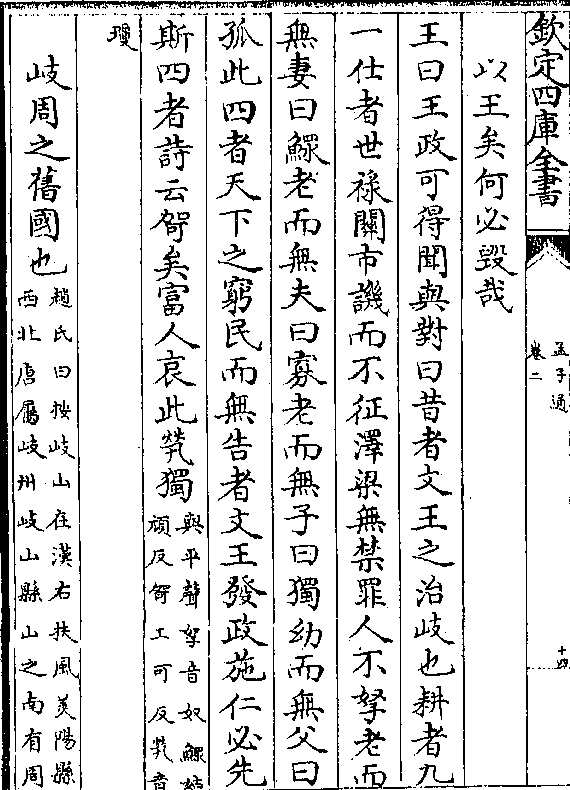 欽定四庫全書
孟子通
卷二
十四
以王矣何必毀哉
王曰王政可得聞與對曰昔者文王之治岐也耕者九
一仕者世祿關市譏而不征澤梁無禁罪人不孥老而
無妻曰鰥老而無夫曰寡老而無子曰獨幼而無父曰
孤此四者天下之窮民而無告者文王發政施仁必先
斯四者詩云哿矣富人哀此煢獨
與平聲孥音奴鰥姑
頑反哿工可反煢音
瓊
岐周之舊國也
趙氏曰按岐山在漢右扶風美陽縣
西北唐屬岐州岐山縣山之南有周